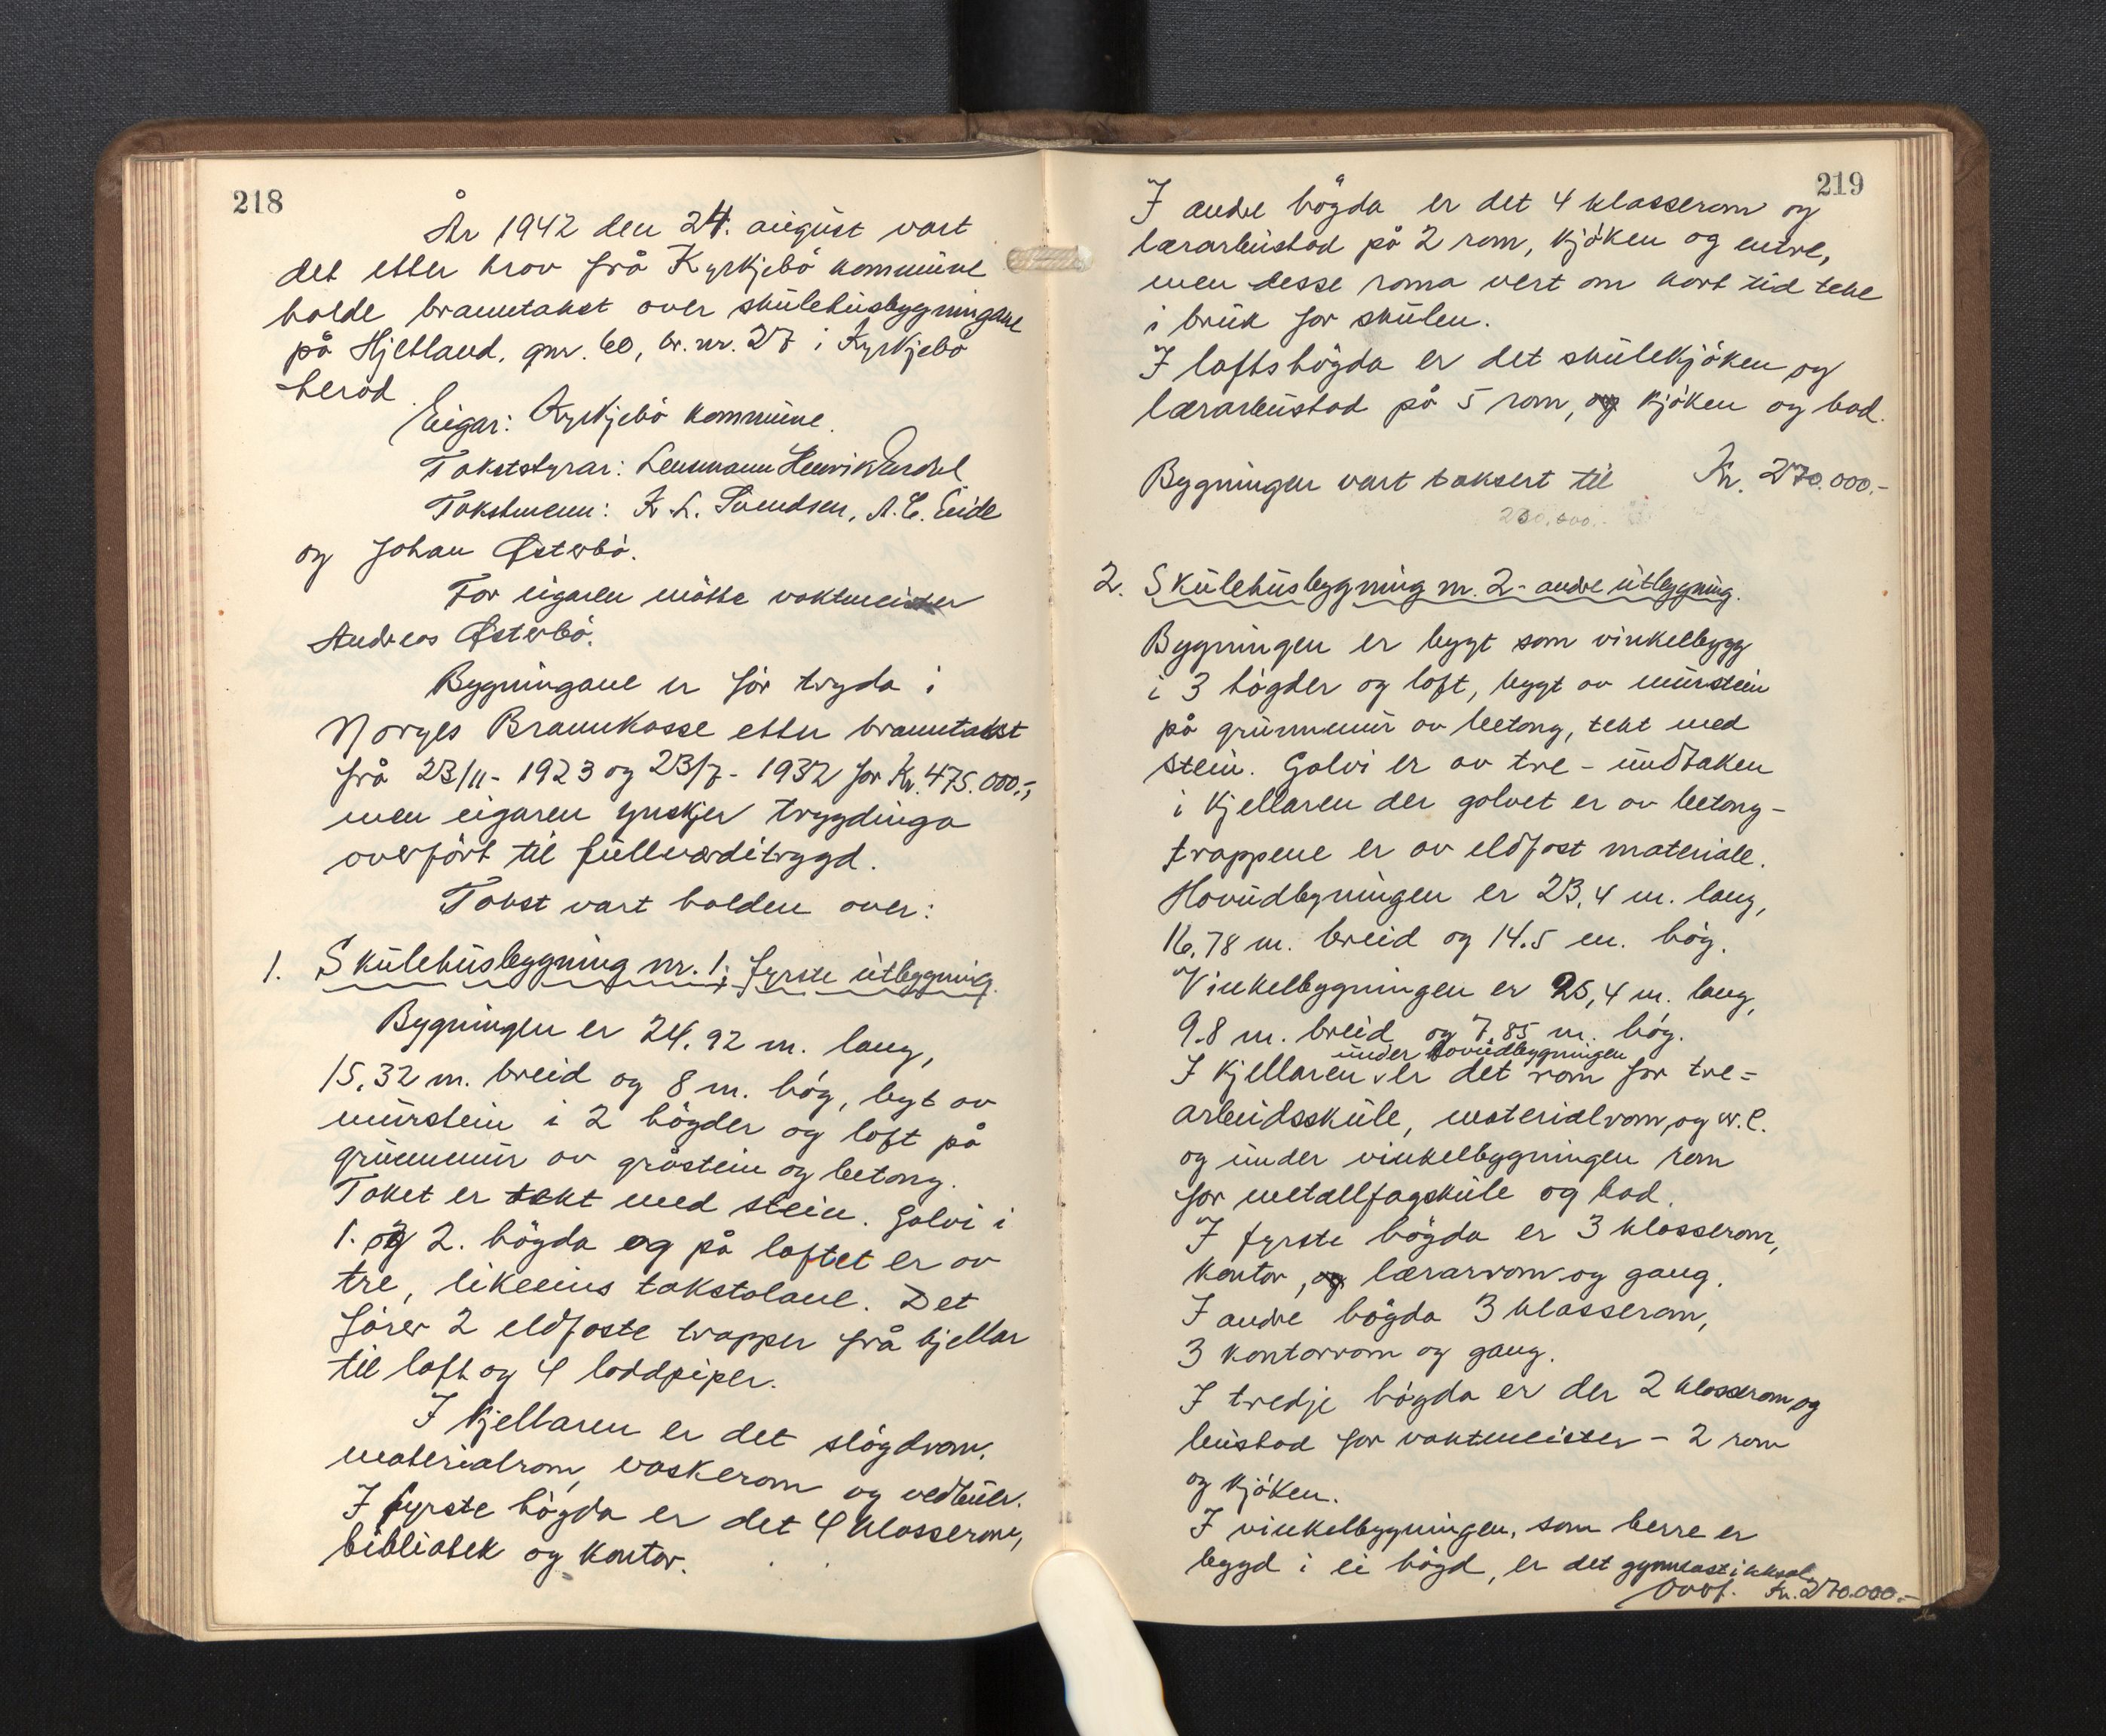 218
År 1942 den 24. august vart
det etter krav frå Kyrkjebö kommune
halde branntakst over skulehusbygningane
på Hjetland, gnr. 60, br.nr. 27 i Kyrkjebö
herad
Eigar: Kyrkjebö kommune.
Takststyrar: Lensmann Henrik
Takstmenn: K. L. Svendsen, A. E. Eide
og Johan Østerbö.
For eigaren mötte vaktmeister
Andreas Østerbö.
Bygningane er för trygda i
Norges Brannkasse etter branntakst
frå 23/11- 1923 og 23/7- 1932 for Kr. 475.000.-,
men eigaren ynskjer trygdinga
overfört til fullverditrygd.
Takst vart halden over:
1. Skulehusbygning nr. 1; fyrste utbygging.
Bygningen er 24.92 m. lang,
15.32 m. breid og 8 m. hög, bygt av
murstein i 2 högder og loft på
grunnmur av gråstein og betong.
Taket er tekt med stein. Golvi i
1. og 2. högda og på loftet er av
tre, likeeins takstolane. Det
förer 2 eldfaste trapper frå kjellar
til loft og 4 loddpiper.
I kjellaren er det slögdrom,
materialrom, vaskerom og vedbur.
I fyrste högda er det 4 klasserom,
bibliotek og kontor.
219
I andre högda er det 4 klasserom og
lærarbustad på 2 rom, kjöken og entre,
men desse roma vert om kort tid teke
i bruk for skulen.
I loftshögda er det skulekjöken og
lærarbustad på 5 rom, og kjöken og bad.
Bygningen vart taksert til Kr. 270.000.-
2. Skulehusbygning nr. 2 - andre utbygging.
Bygningen er bygt som vinkelbygg
i 3 högder og loft, bygt av murstein
på grunnmur av betong, tekt med
stein. Golvi er av tre - undtaken
i kjellaren der golvet er av betong -
trappene er av eldfast materiale.
Hovudbygningen er 23,4 m. lang,
16,78 m. breid og 14.5 m. hög.
Vinkelbygningen er 25,4 m. lang,
9.8 m. breid og 7.85 m. hög.
under hovudbygningen
I kjellaren er det rom for tre-
arbeidsskule, materialrom, og w.c.
og under vinkelbygningen rom
for metallfagskule og bad.
I fyrste högda er 3 klasserom,
kontor, og lærarrom og gang.
I andre högda 3 klasserom,
3 kontorrom og gang.
I tredje högda er der 2 klasserom og
bustad for vaktmeister - 2 rom
og kjöken.
I vinkelbygningen, som berre er
bygd i ei högd, er det gymnastikksal.
Overf. Kr. 270.000.-